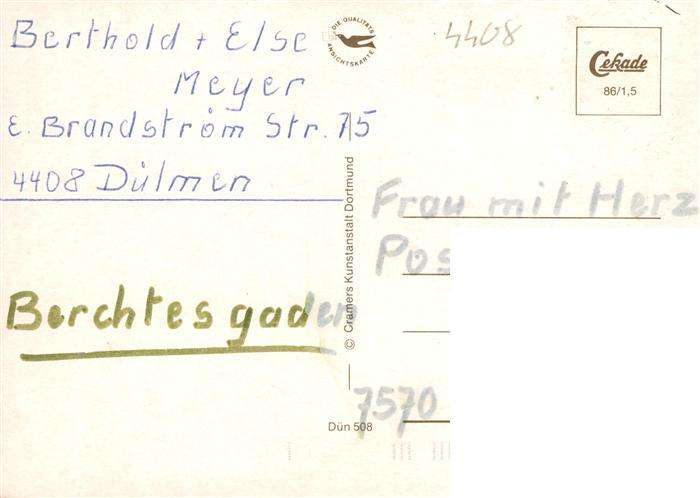 Berthold + Else
Meyer
E. Brandström Str. 75
4408 Dülmen
Berchtesgaden
DIE QUALITÄTS
ANSICHTSKARTE
4408
Cekade
86/1,5
© Cramers Kunstanstalt Dortmund
Frau mit Herz
Pos
7570
Dün 508